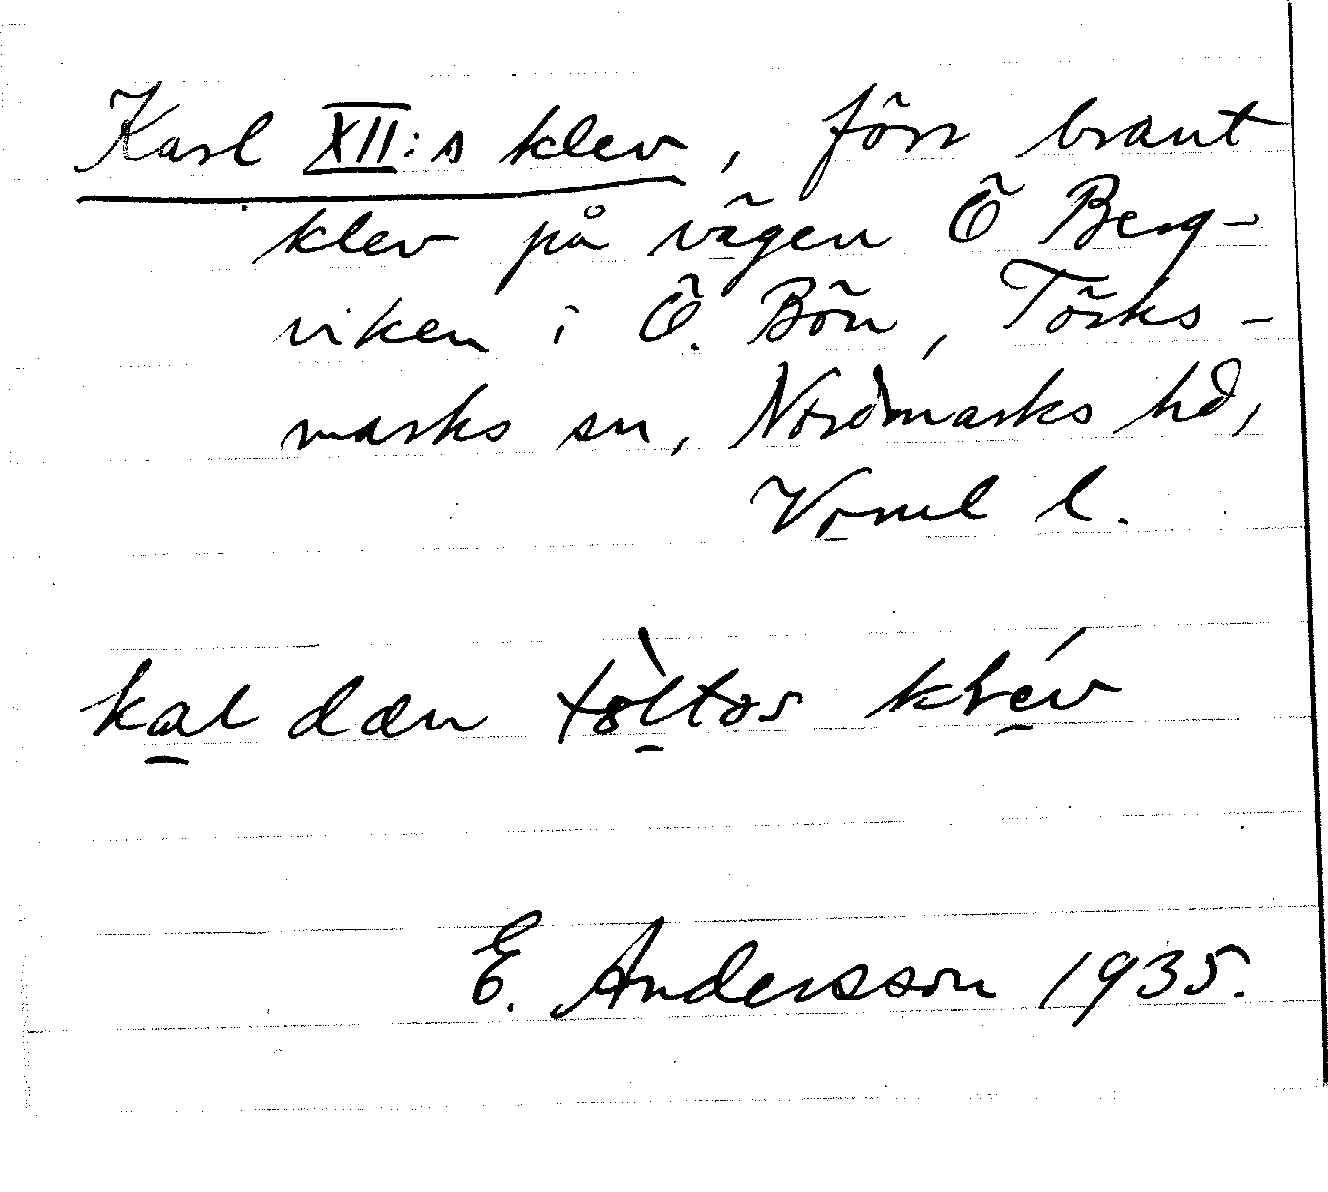 Karl XII:s klev, förr brant
klev på vägen Ö Berg-
viken i Ö. Bön, Törks-
marks sn, Nordmarks hd,
Vrml l.
kal dæn tòltəs klév
E. Andersson 1935.